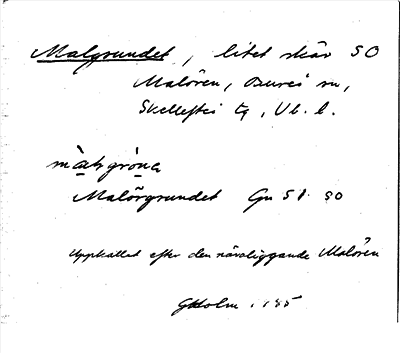 Malgrundet, litet skär SO
Malören, Bureå sn,
Skellefteå tg, Vb. l.
Malörgrundet Gn 51 SO
Uppkallat efter den närliggande Malören
GHolm